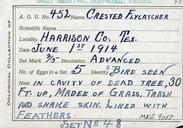 A. O. U. No. 452 Name CRESTED FLYCATCHER
Scientific Name
Locality HARRISON CO. TEX.
Date JUNE 1ST 1914
Set Mark 3/5 Incubation ADVANCED
No. of Eggs in a Set 5 Identity BIRD SEEN
Nest IN CAVITY OF DEAD TREE, 30
FT. UP, MADEE OF GRASS, TRASH
AND SNAKE SKIN. LINED WITH
FEATHERS.
SET NO 48
OOLOGICAL COLLECTION OF